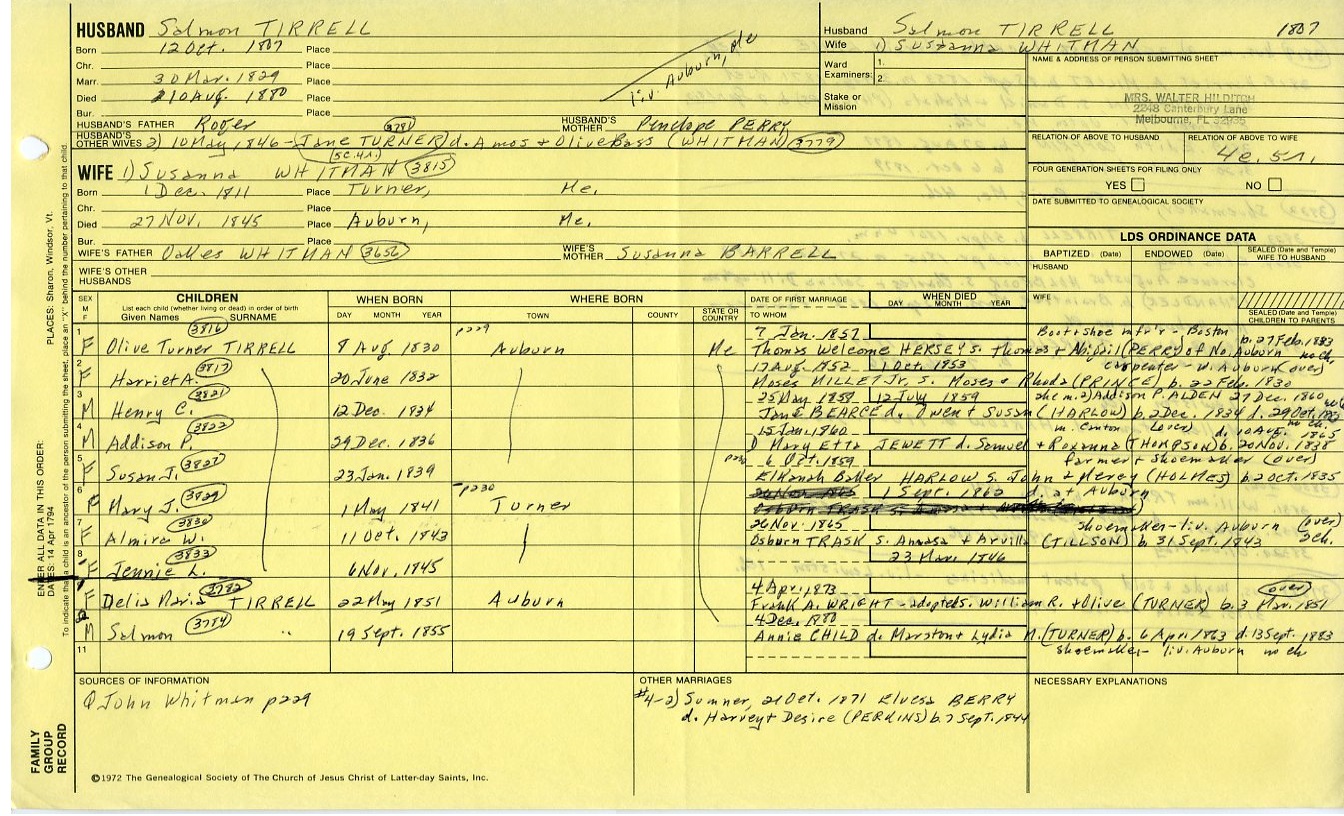 HUSBAND Salmon TIRRELL
Born 12 Oct. 1807 Place
Chr. Place
Marr. 30 Mar. 1829 Place
Died 10 Aug. 1880 Place
Bur. Place
liv. Auburn, Me
HUSBAND'S FATHER Roger HUSBAND'S MOTHER Penelope PERRY
HUSBAND'S OTHER WIVES 2) 10 May 1846 - Jane TURNER d. Amos + Olive Bass (WHITMAN) 3779
Husband Salmon TIRRELL 1807
Wife 1) Susanna WHITMAN
Ward Examiners: 1. 2.
Stake or Mission
NAME & ADDRESS OF PERSON SUBMITTING SHEET
MRS. WALTER HILDITCH
2248 Canterbury Lane
Melbourne, FL 32935
RELATION OF ABOVE TO HUSBAND RELATION OF ABOVE TO WIFE
FOUR GENERATION SHEETS FOR FILING ONLY
YES NO
DATE SUBMITTED TO GENEALOGICAL SOCIETY
WIFE 1) Susanna WHITMAN 3815
Born 1 Dec. 1811 Place Turner, Me.
Chr. Place
Died 27 Nov. 1845 Place Auburn, Me.
Bur. Place
WIFE'S FATHER Oakes WHITMAN 3656 WIFE'S MOTHER Susanna BARRELL
WIFE'S OTHER HUSBANDS
LDS ORDINANCE DATA
BAPTIZED (Date) ENDOWED (Date) SEALED (Date and Temple) WIFE TO HUSBAND
HUSBAND
WIFE
SEALED (Date and Temple) CHILDREN TO PARENTS
SEX M F CHILDREN List each child (whether living or dead) in order of birth Given Names SURNAME WHEN BORN DAY MONTH YEAR WHERE BORN TOWN COUNTY STATE OR COUNTRY DATE OF FIRST MARRIAGE TO WHOM WHEN DIED DAY MONTH YEAR
3816 p229 7 Jan. 1857 Boot + shoe mfr's - Boston b. 27 Feb. 1833
1 F Olive Turner TIRRELL 8 Aug 1830 Auburn Me Thomas Welcome HERSEY s. Thomas + Abigail (PERRY of No. Auburn no ch.
3817 17 Aug. 1852 1 Oct. 1953 carpenter - W. Auburn (over)
2 F Harriet A. 20 June 1832 Moses MILLET Jr. s. Moses + Rhoda (PRINCE) b. 22 Feb. 1830
3821 25 May 1859 12 July 1859 she m. 2) Addison P. ALDEN 27 Dec. 1860
3 M Henry C. 12 Dec. 1834 Jane BEARCE d. Owen + Susan (HARLOW) b. 2 Dec. 1834 d. 29 Oct.
15 Jan. 1860 m. Canton (over) d. 10 Aug. 1865
4 M Addison P. 29 Dec. 1836 Mary Etta JEWETT d. Samuel + Roxanna (THOMPSON) b. 20 Nov. 1838
3827 6 Oct. 1859 farmer + shoemaker (over)
5 F Susan J. 23 Jan. 1839 Elkanah Baker HARLOW s. John + Mercy (HOLMES) b. 2 Oct. 1835
3829 p230 1 Sept. 1862 d. at Auburn
6 F Mary J. 1 May 1841 Turner
3830 26 Nov. 1865 shoemaker - liv. Auburn (over)
7 F Almira W. 11 Oct. 1843 Osburn TRASK s. Amasa + Arvilla (TILLSON) b. 31 Sept. 1843 2 ch.
3833 23 Mar. 1846
8 F Jennie L. 6 Nov. 1845
3782 4 Apr. 1873 (over)
F Delia Maria TIRRELL 22 May 1851 Auburn Frank A. WRIGHT - adopted s. William R. + Olive (TURNER) b. 3 Mar. 1851
3784 4 Dec. 1880
M Salmon " 19 Sept. 1855 Annie CHILD d. Marston + Lydia M. (TURNER) b. 6 Apr. 1863 d. 13 Sept. 1883
11 shoemaker - liv. Auburn no ch
SOURCES OF INFORMATION
John Whitman p229
OTHER MARRIAGES
#4-2) Sumner, 21 Oct. 1871 Elvesa BERRY
d. Harvey + Desire (PERKINS) b. 7 Sept. 1844
NECESSARY EXPLANATIONS
©1972 The Genealogical Society of The Church of Jesus Christ of Latter-day Saints, Inc.
FAMILY GROUP RECORD
ENTER ALL DATA IN THIS ORDER:
DATES: 14 Apr 1794
PLACES: Sharon, Windsor, Vt.
To indicate that a child is an ancestor of the person submitting the sheet, place an "X" behind the number pertaining to that child.